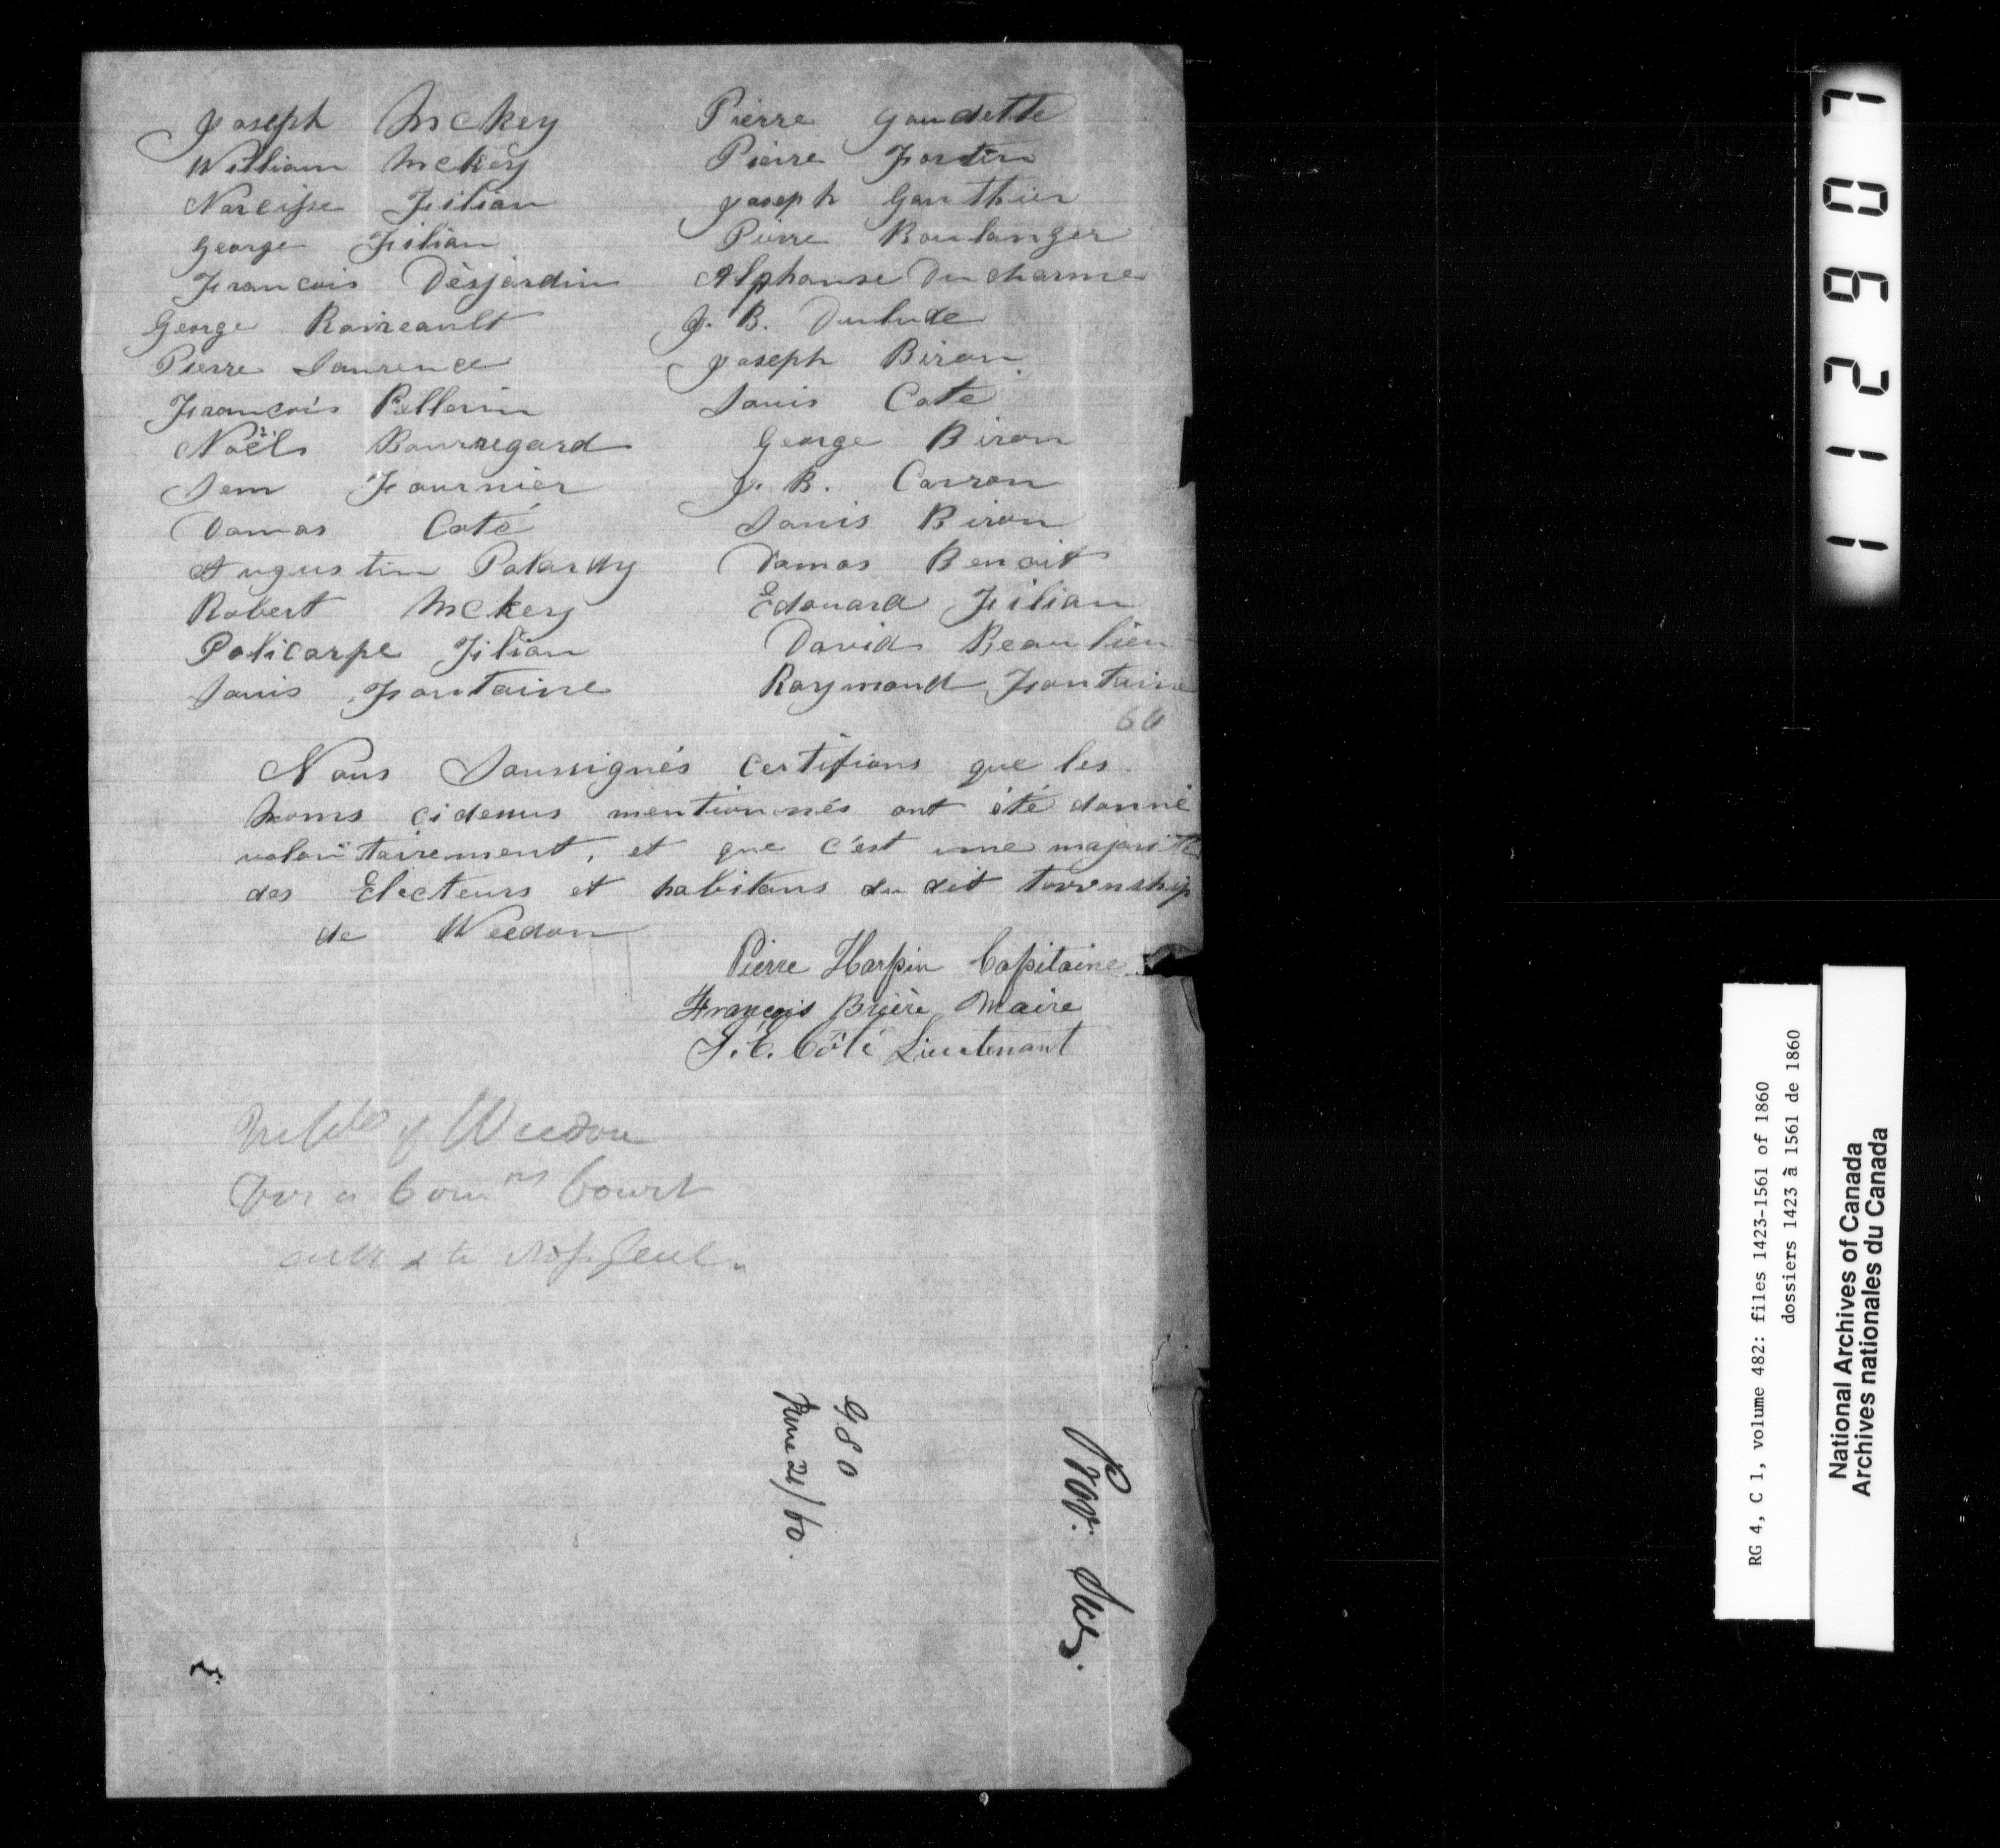 Joseph McKey Pierre Gaudette
William McKey Pierre Fortin
Narcisse Filian Joseph Gauthier
George Filian Pierre Boulanger
Francois Dèsjardin Alphonse Ducharme
George J. B. Dulude
Pierre Laurence Joseph Biron
François Pellerin Louis Cote
Noël Bourregard George Biron
Sem Fournier J. B. Carron
Damas Coté Louis Biron
Augustin Palardy Damas Benoit
Robert McKey Edouard Filian
Policarpe Filian David Beaulieu
Louis Fontaine Raymond Fontaine
60
Nous Soussignés certifions que les
noms cidessus mentionnés ont été donné
volontairement, et que c'est une majorité
des Electeurs et habitans du dit township
de Weedon
Pierre Harpin Capitaine
François Brière Maire
Côté Lieutenant
of Weedon
For a Comrs Court
980
June 21/60.
Prov. Secy.
112907
RG 4, C 1, volume 482: files 1423-1561 of 1860
dossiers 1423 à 1561 de 1860
National Archives of Canada
Archives nationales du Canada